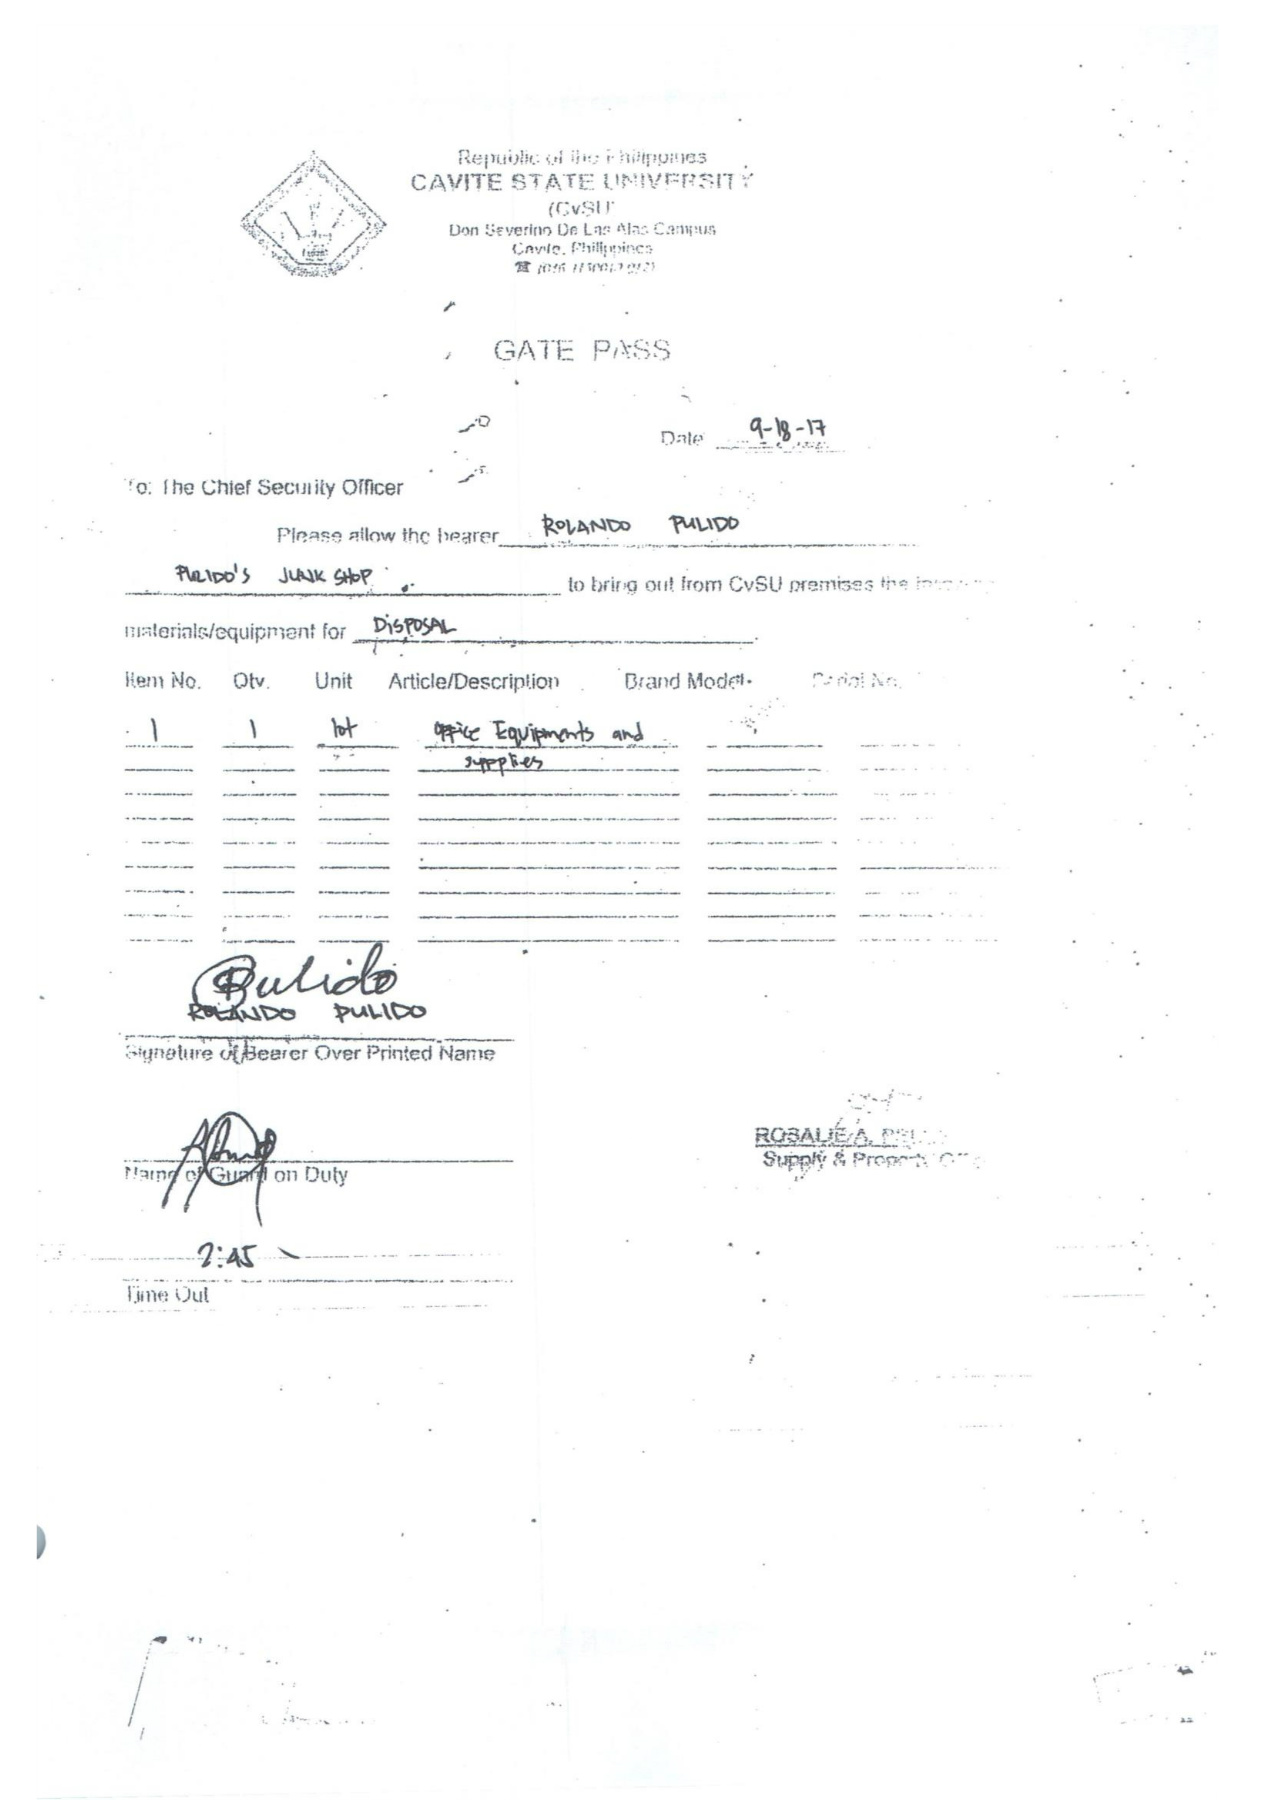 Republic of the Philippines
CAVITE STATE UNIVERSITY
(CvSU)
Don Severino De Las Alas Campus
Cavite, Philippines
GATE PASS
Date 9-18-17
To: The Chief Security Officer
Please allow the bearer ROLANDO PULIDO
PULIDO'S JUNK SHOP to bring out from CvSU premises the
materials/equipment for DISPOSAL
Item No. Qty. Unit Article/Description Brand Model Serial No.
1 1 lot Office Equipments and
supplies
Pulido
ROLANDO PULIDO
Signature of Bearer Over Printed Name
ROSALIE A.
Supply & Property
Name of Guard on Duty
2:45
Time Out